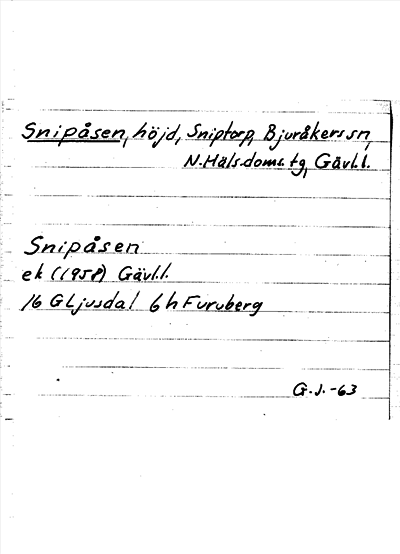 Snipåsen, höjd, Sniptorp, Bjuråkers sn,
N.Häls.doms.tg, Gävl.l.
Snipåsen
ek (1958) Gävl.l.
16 G Ljusdal 6 h Furuberg
G.J.-63